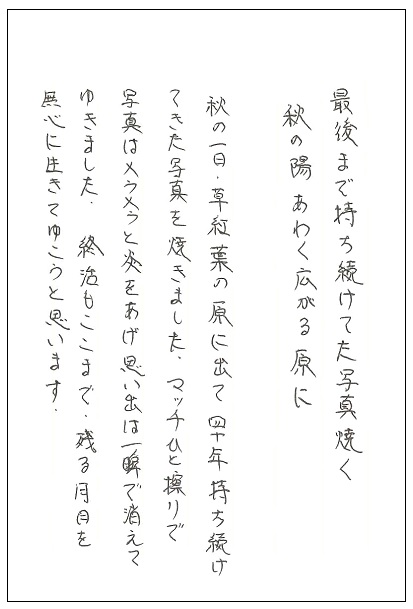 最後まで持ち続けてた写真焼く
秋の陽あわく広がる原に
秋の一日、草紅葉の原に出て四十年持ち続け
てきた写真を焼きました。マッチひと擦りで
写真はメラメラと炎をあげ思い出は一瞬で消えて
ゆきました。終活もここまで、残る月日を
無心に生きてゆこうと思います。